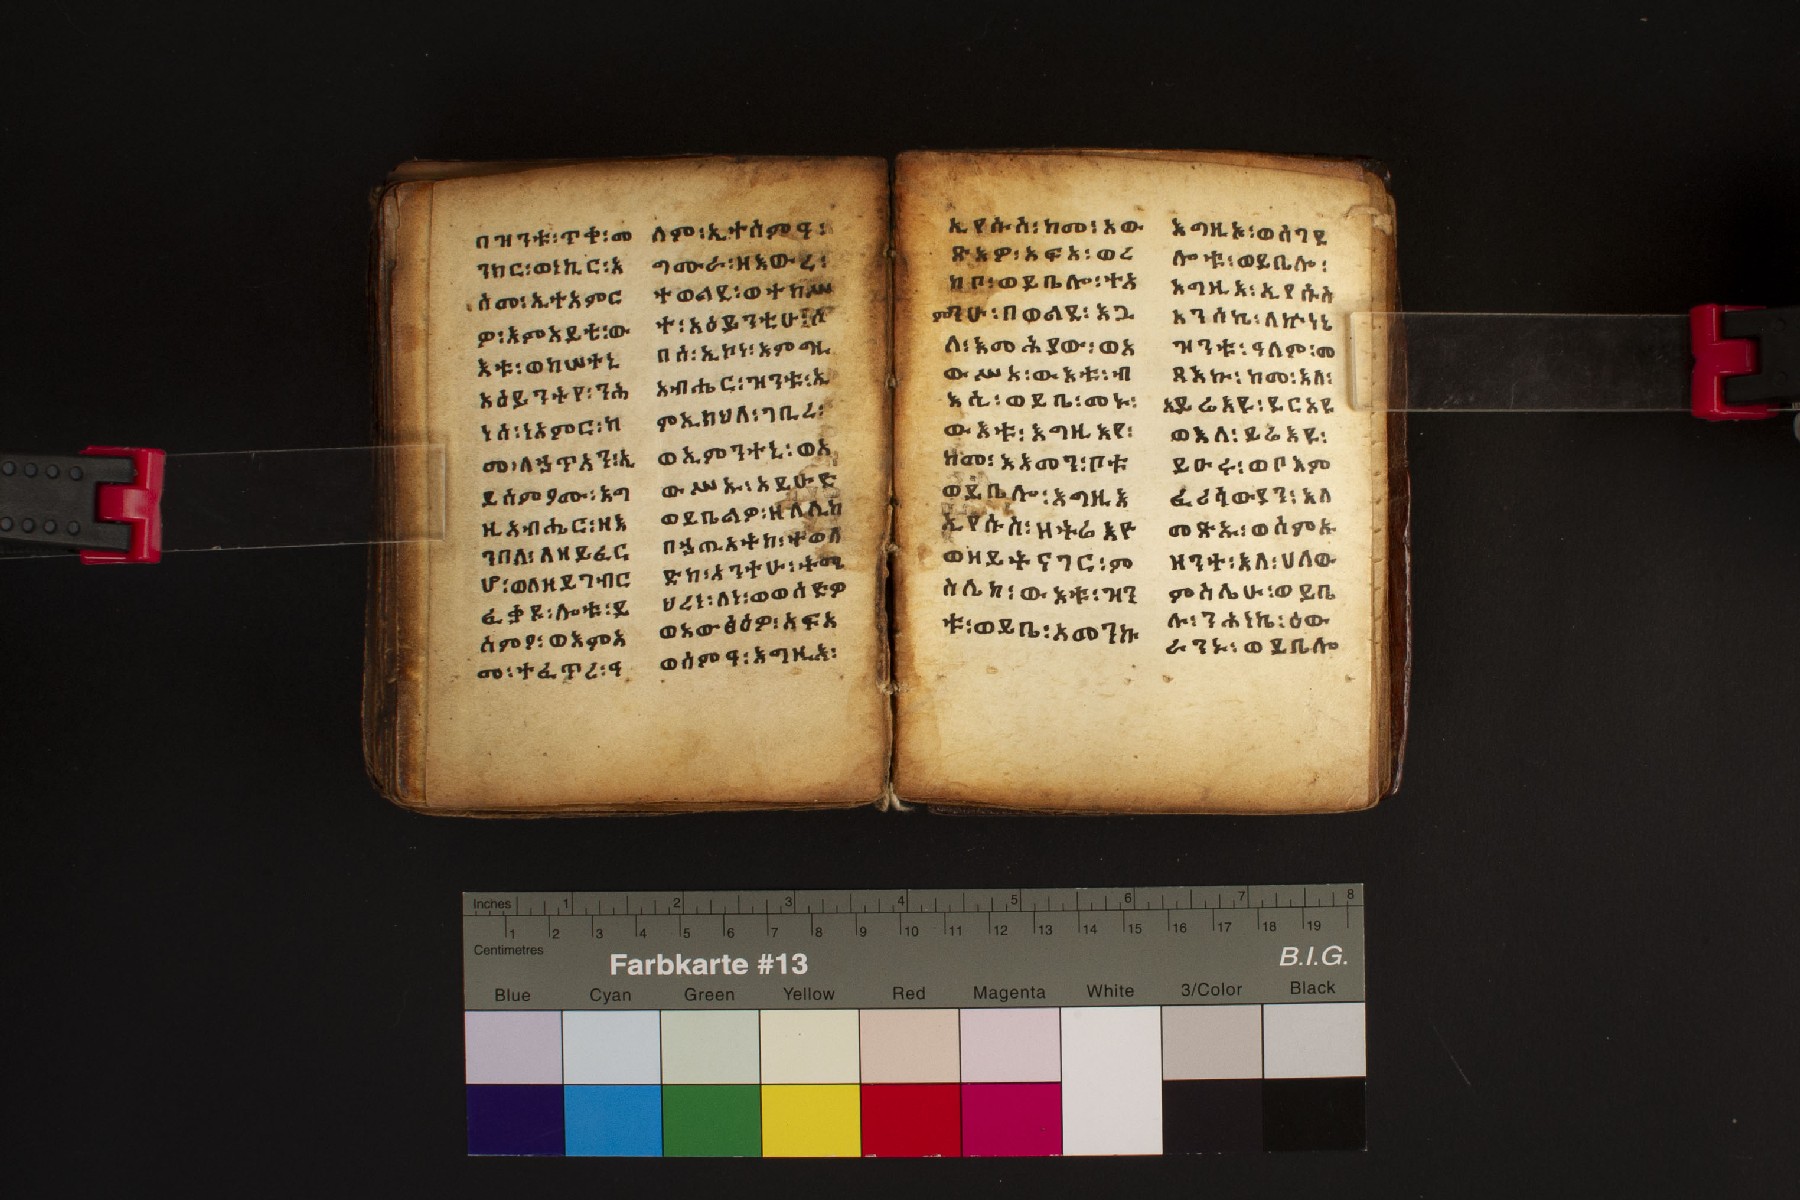 በዝንቱ፡ጥቀ፡መ
ንክር፡ወነኪር፡እ
ስመ፡ኢተአምር
ዎ፡እምአይቴ፡ው
እቱ፡ወከሠተኒ
አዕይንትየ፡ንሕ
ነሰ፡ነአምር፡ከ
መ፡ለኃጥአን፡ኢ
ይሰምዖሙ፡እግ
ዚአብሔር፡ዘእ
ንበለ፡ለዘይፈር
ሆ፡ወለዘይገብር
ፈቃዶ፡ሎቱ፡ይ
ሰምዖ፡ወእምአ
መ፡ተፈጥረ፡ዓ
ለም፡ኢተሰምዓ፡
ግሙራ፡ዘእውረ፡
ተወልደ፡ወተከሥ
ተ፡አዕይንቲሁ፡ሶ
በሰ፡ኢኮነ፡እምግዚ
አብሔር፡ዝንቱ፡እ
ምኢክህለ፡ገቢረ፡
ወኢምንተኒ፡ወአ
ውሥኡ፡አይሁድ
ወይቤልዎ፡ዘለሊከ
በኃጢአትከ፡ተወለ
ድከ፡አንተሁ፡ትሜ
ህረነ፡ለነ፡ወወሰድዎ
ወአውፅዕዎ፡አፍአ
ወሰምዓ፡እግዚእ፡
ኢየሱስ፡ከመ፡አው
ጽእዎ፡አፍአ፡ወረ
ከቦ፡ወይቤሎ፡ተአ
ምንሁ፡በወልደ፡እጓ
ለ፡እመሕያው፡ወአ
ውሥአ፡ውእቱ፡ብ
እሲ፡ወይቤ፡መኑ፡
ውእቱ፡እግዚእየ፡
ከመ፡እእመን፡ቦቱ
ወይቤሎ፡እግዚእ
ኢየሱስ፡ዘትሬእዮ
ወዘይትናገር፡ም
ስሌከ፡ውእቱ፡ዝን
ቱ፡ወይቤ፡አመንኩ
እግዚኦ፡ወሰገደ
ሎቱ፡ወይቤሎ፡
እግዚእ፡ኢየሱስ
አንሰኬ፡ለኵነኔ
ዝንቱ፡ዓለም፡መ
ጻእኩ፡ከመ፡እለ፡
ኢይሬእዩ፡ይርአዩ
ወእለ፡ይሬእዩ፡
ይዑሩ፡ወቦእም
ፈሪሳውያን፡እለ
መጽኡ፡ወሰምዑ
ዘንተ፡እለ፡ህለው
ምስሌሁ፡ወይቤ
ሉ፡ንሕነኬ፡ዕው
ራንኑ፡ወይቤሎ
Inches 1 2 3 4 5 6 7 8
1 2 3 4 5 6 7 8 9 10 11 12 13 14 15 16 17 18 19
Centimetres
Farbkarte #13
B.I.G.
Blue Cyan Green Yellow Red Magenta White 3/Color Black